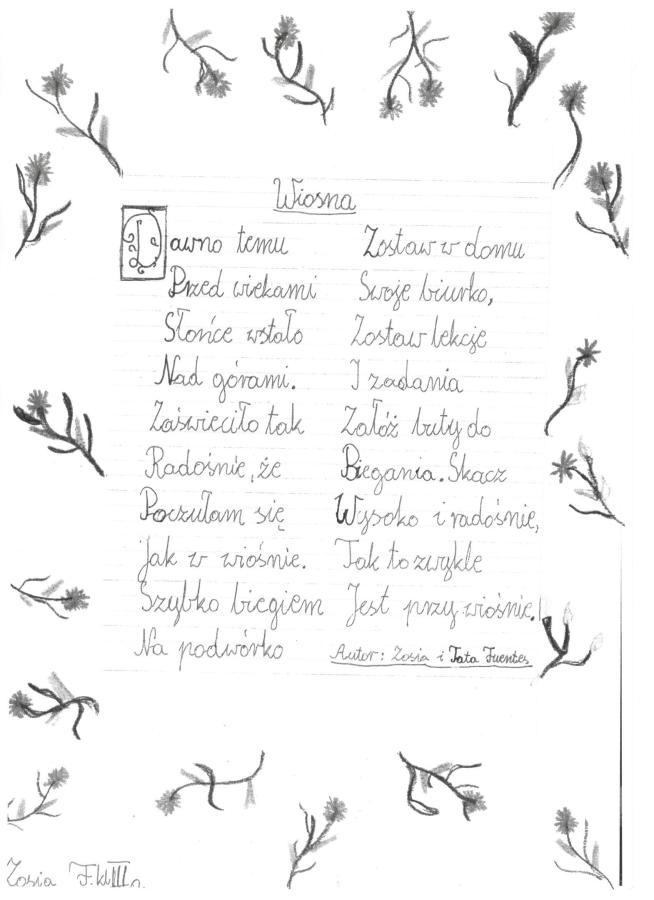 Wiosna
Dawno temu
Przed wiekami
Słońce wstało
Nad górami.
Zaświeciło tak
Radośnie, że
Poczułam się
Jak w wiośnie.
Szybko biegiem
Na podwórko
Zostaw w domu
Swoje biurko,
Zostaw lekcje
I zadania
Załóż buty do
Biegania. Skacz
Wysoko i radośnie,
Tak to zwykle
Jest przy wiośnie!
Autor: Zosia i Tata Fuentes
Zosia F. kl III a.